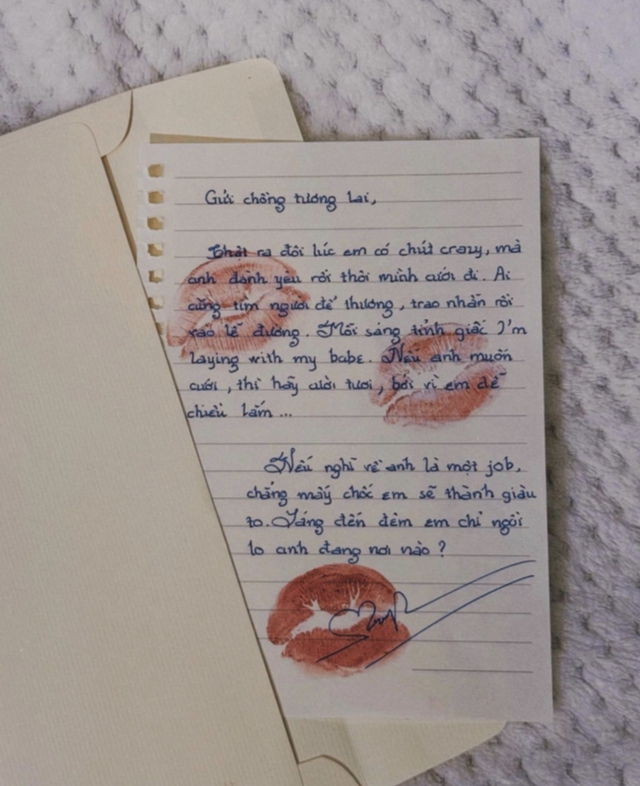 Gửi chồng tương lai,
Thật ra đôi lúc em có chút crazy, mà
anh đành yêu rồi thôi mình cưới đi. Ai
cũng tìm người dễ thương, trao nhẫn rồi
vào lễ đường. Mỗi sáng tỉnh giấc I'm
laying with my babe. Nếu anh muốn
cưới, thì hãy cười tươi, bởi vì em dễ
chiều lắm ...
Nếu nghĩ về anh là một job,
chẳng mấy chốc em sẽ thành giàu
to. Sáng đến đêm em chỉ ngồi
lo anh đang nơi nào ?